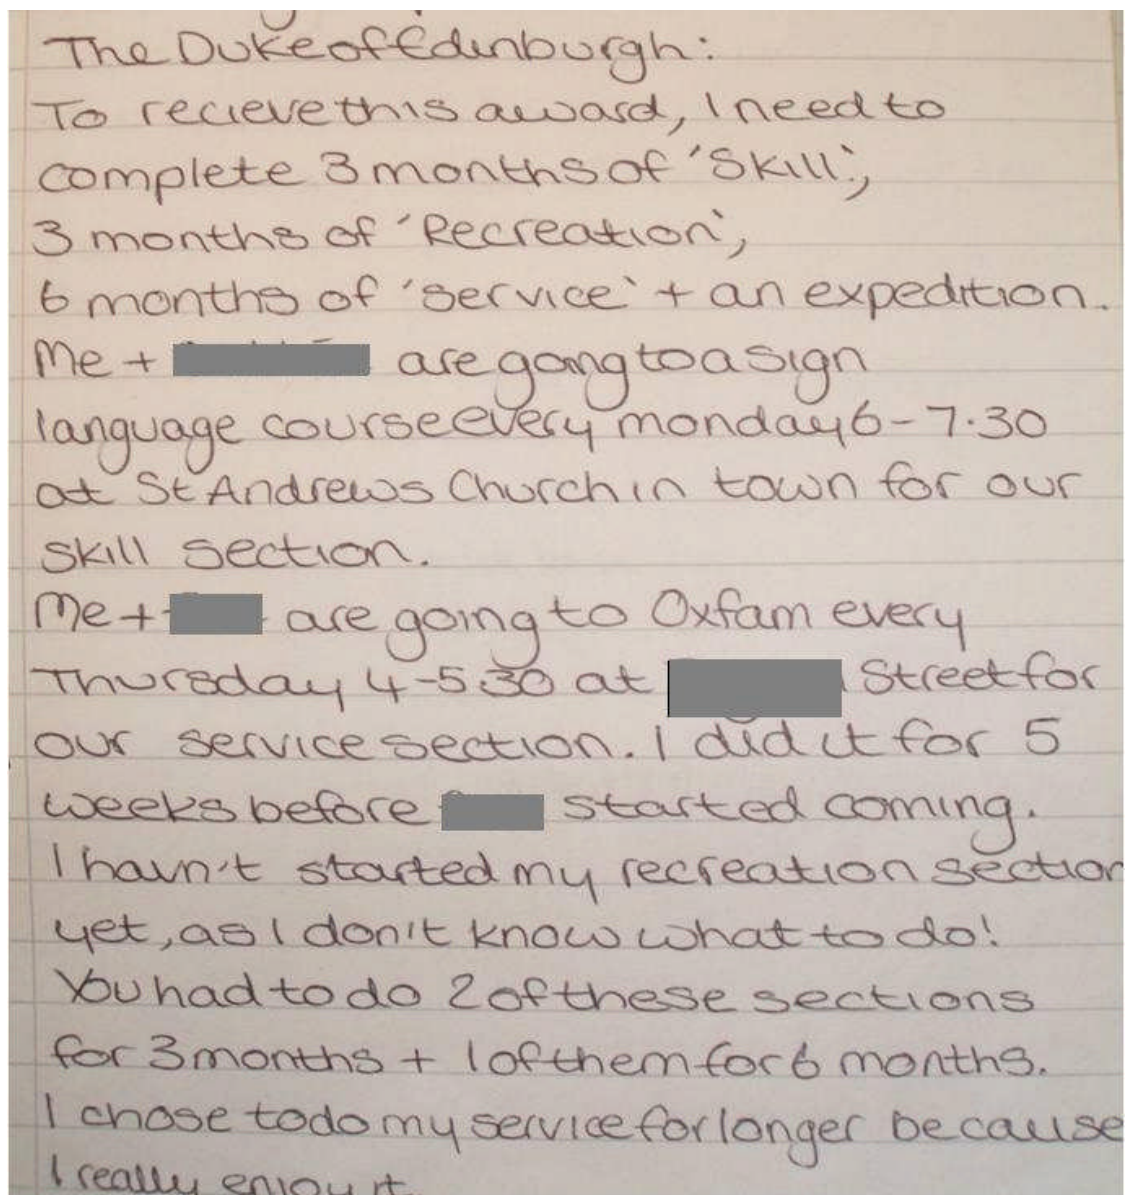 The Duke of Edinburgh:
To recieve this award, I need to
complete 3 months of 'Skill',
3 months of 'Recreation',
6 months of 'service' + an expedition.
Me + are going to a sign
language course every monday 6-7.30
at St Andrews Church in town for our
skill section.
Me + are going to Oxfam every
Thursday 4-5.30 at Street for
our service section. I did it for 5
weeks before started coming.
I havn't started my recreation section
yet, as I don't know what to do!
You had to do 2 of these sections
for 3 months + 1 of them for 6 months.
I chose to do my service for longer because
I really enjoy it.